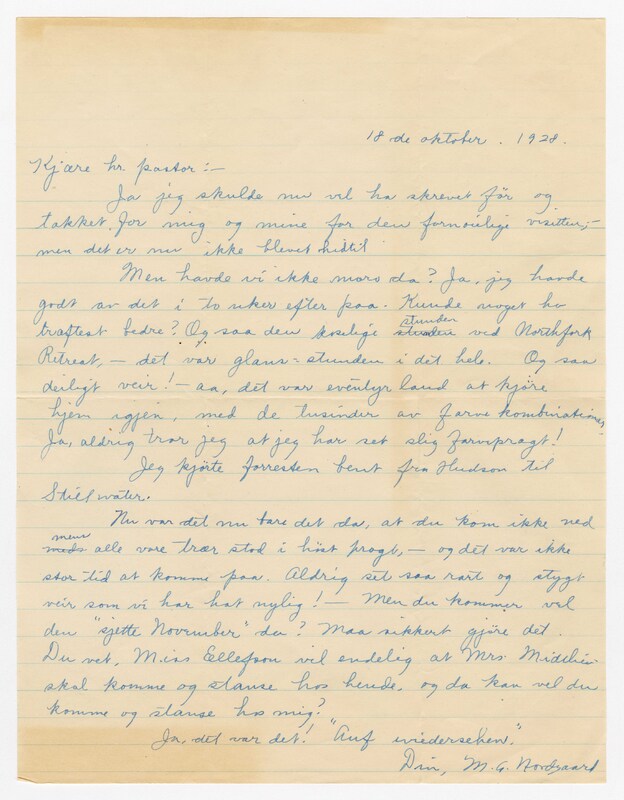 18 de oktober. 1928.
Kjære hr pastor:—
Ja jeg skulde nu vel ha skrevet før og
takket for mig og mine for den fornøielige visitten,—
men det er nu ikke blevet hidtil
Men havde vi ikke moro da? Ja, jeg havde
godt av det i to uker efter paa. Kunde noget ha
truffest bedre? Og saa den koselige stunden
ved Northfork
Retreat, — det var glans=stunden i det hele. Og saa
deiligt veir! — aa, det var eventyr land at kjøre
hjem igjen, med de tusinder av farve kombinationer,
Ja, aldrig tror jeg at jeg har set slig farvepragt!
Jeg kjørte forresten bent fra Hudson til
Stillwater.
Nu var det nu bare det da, at du kom ikke ned
mens
alle vore trær stod i høst pragt, — og det var ikke
stor tid at komme paa. Aldrig set saa rart og stygt
veir som vi har hat nylig! — Men du kommer vel
den "sjette November" da? Maa sikkert gjøre det.
Du vet, Miss Ellefson vil endelig at Mrs
skal komme og stanse hos hende, og da kan vel du
komme og stanse hos mig?
Ja, det var det! "Auf wiedersehen."
Din, M. G. Nordgaard